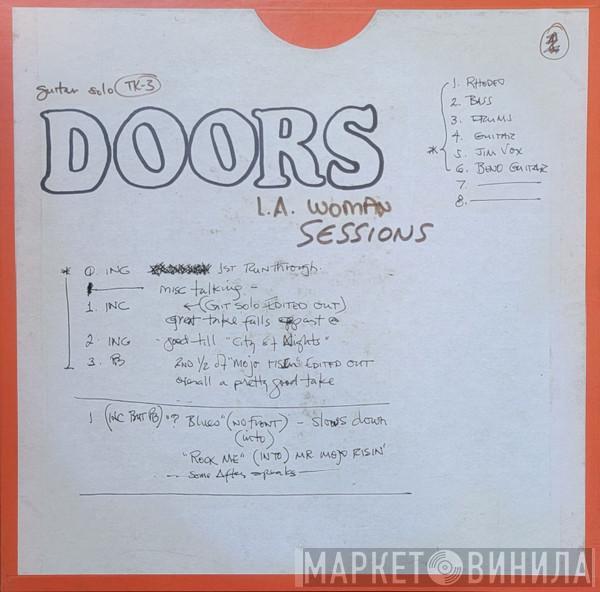 guitar solo TK-3
DOORS
L.A. WOMAN
SESSIONS
1. RHODES
2. BASS
3. DRUMS
4. GUITAR
* 5. JIM VOX
6. BEND GUITAR
7.
8.
* 0 ING 1ST RUN through.
misc talking -
1. INC ← (GIT SOLO EDITED OUT)
great take falls apart @
2. ING good till "City of Nights"
3. PB 2ND 1/2 of "MOJO RISEN" EDITED OUT
overall a pretty good take
1 (INC BUT PB) "? Blues" (NO FRONT) - slows down
(into)
"ROCK ME" (INTO) MR MOJO RISIN'
-- some After speaks
МАРКЕТ ВИНИЛА